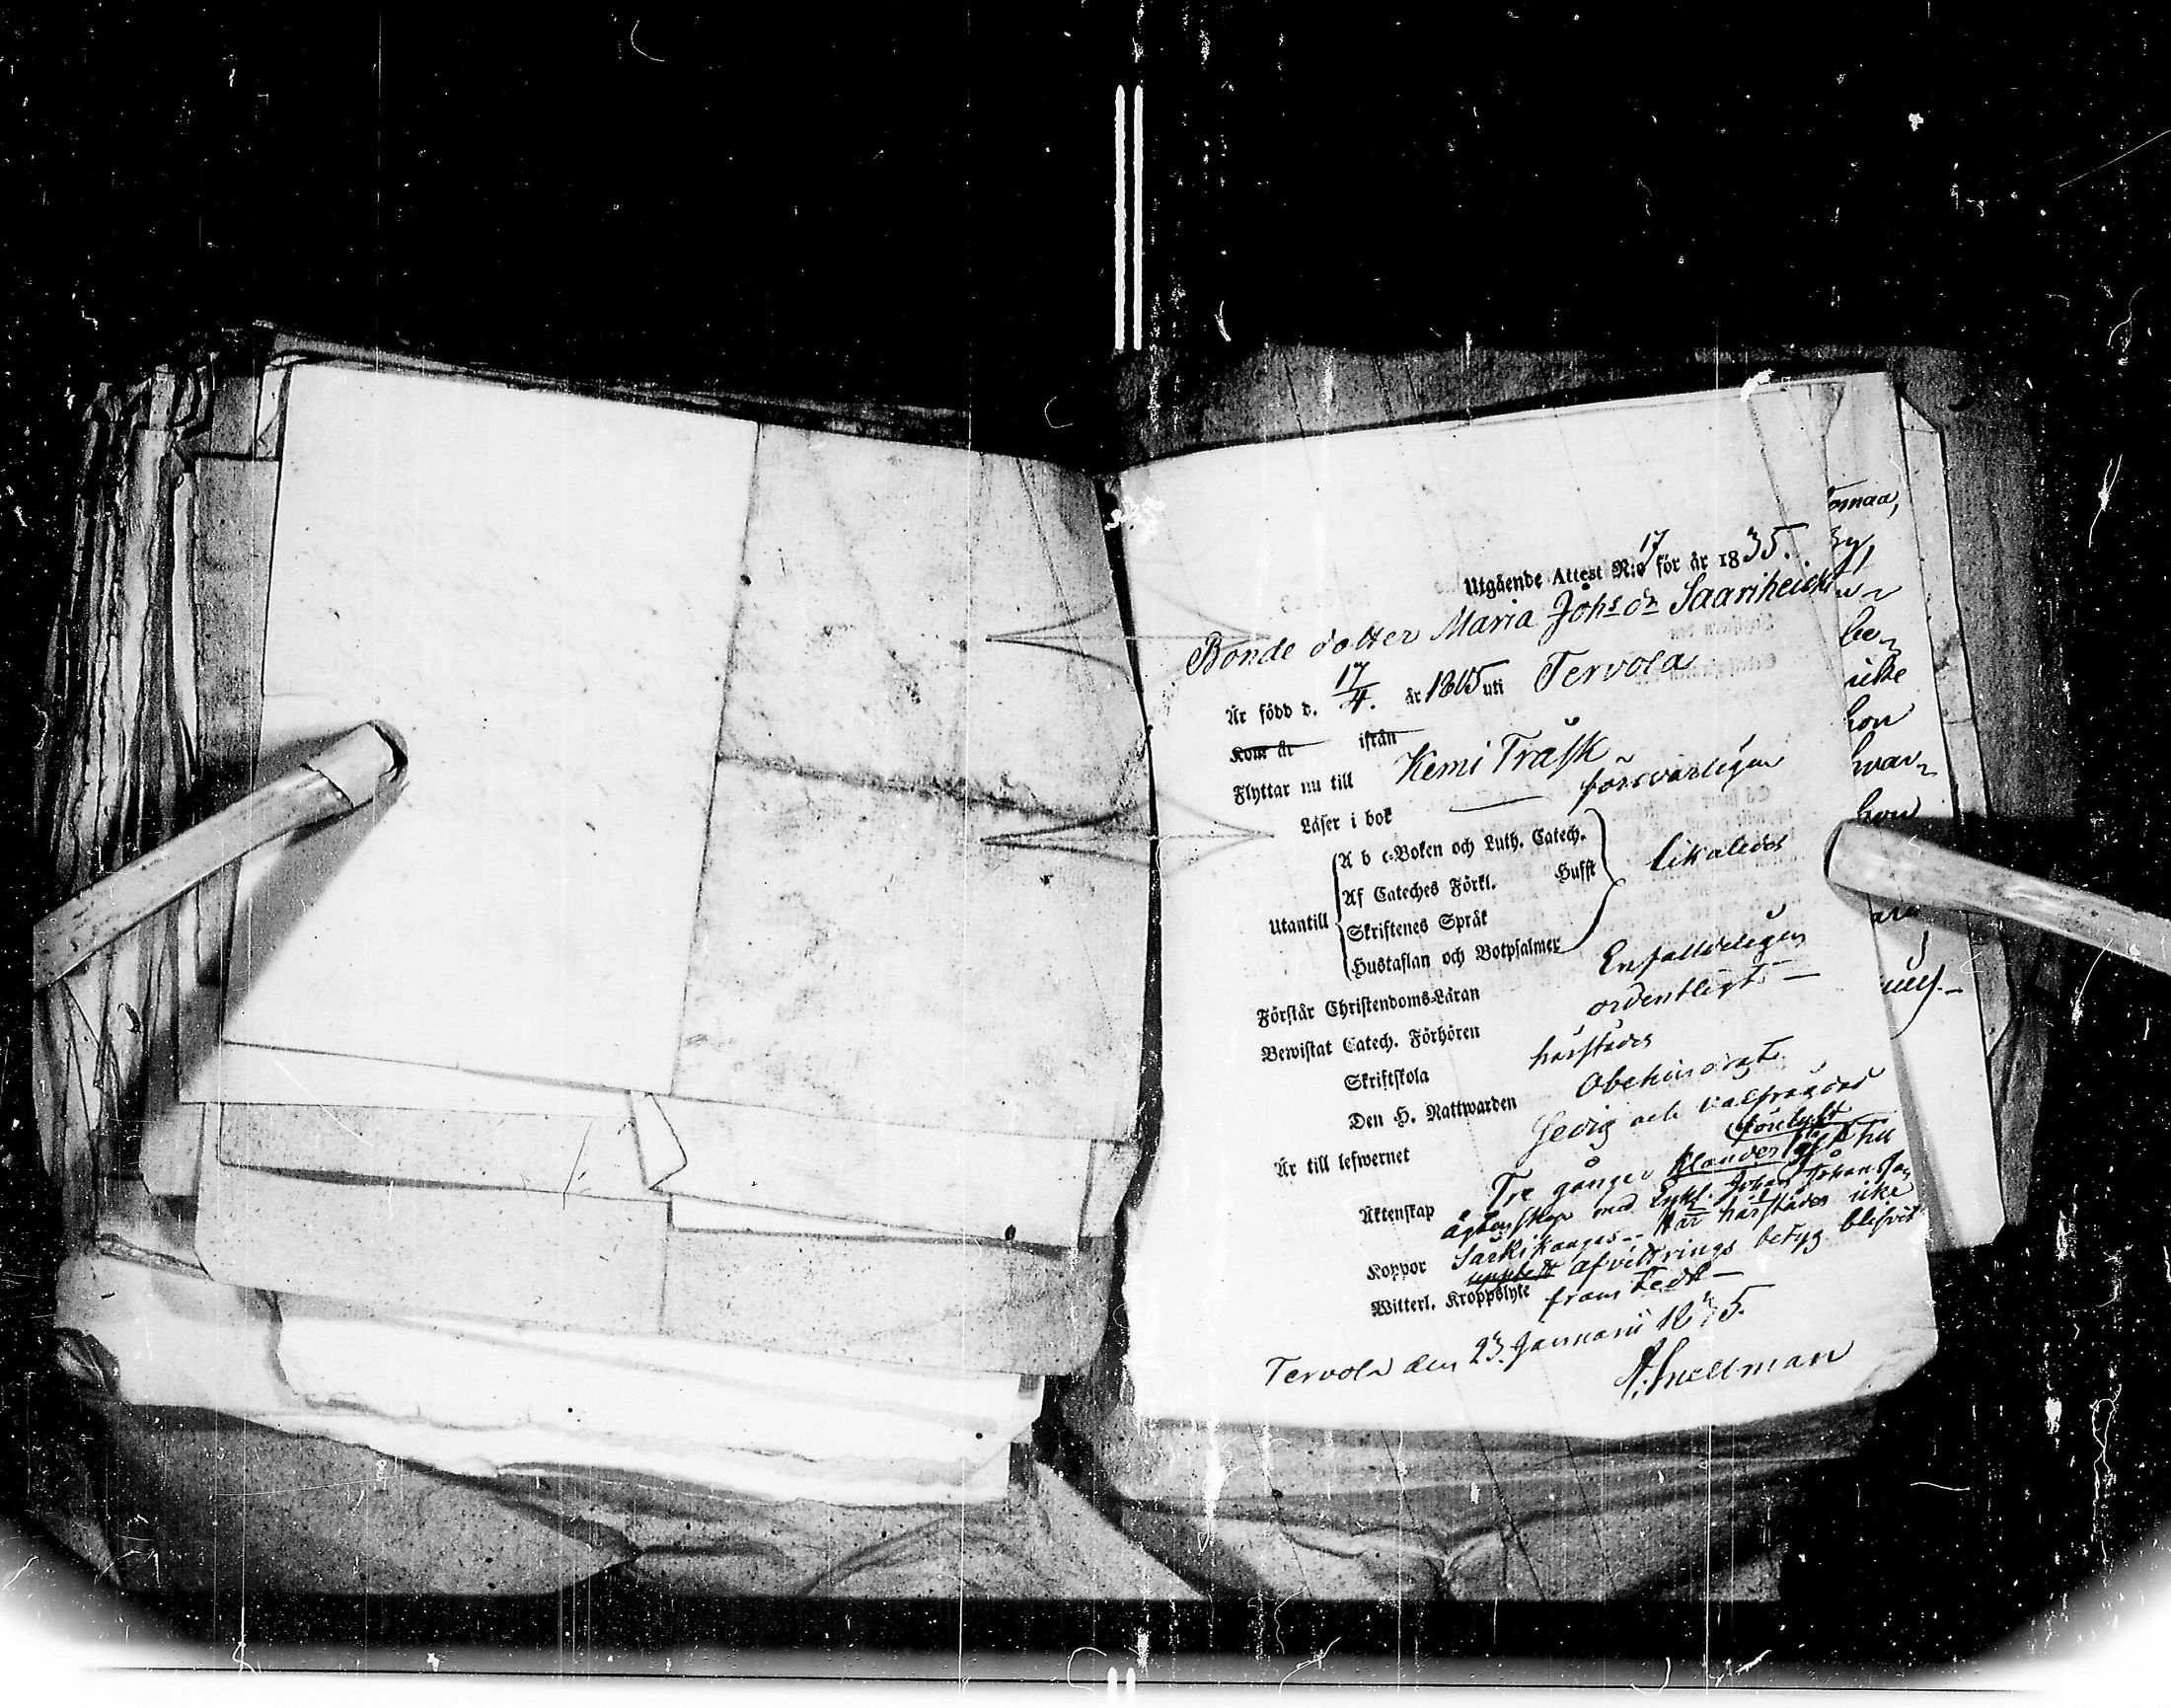 Utgående Attest N:o 17 för år 1835.
Bonde dotter Maria Johs dr Saariheicki
Är född d. 17/4. år 1815 uti Tervola
Kom år ifrån
Flyttar nu till Kemi Träsk
Läser i bok försvarligen
Utantill
A b c-Boken och Luth. Catech.
Af Cateches Förkl. Hufst
Skriftenes Språk
Hustaflan och Botpsalmer
likaledes
Förstår Christendoms-Läran Enfalldeligen
Bewistat Catech. Förhören ordentligt
Skriftskola härstädes
Den H. Nattwarden Obehindradt
Är till lefwernet Sedig och välfräjdad
Äktenskap Tre gånger lyst till
ägtenskap med Johan Johansson
Koppor Särkikangas. Har härstädes icke
Witterl. Kroppslyte afvittrings betyg blifvit
framtedt
Tervola den 23. Januarii 1835.
A. Snellman
omaa,
icke
hon
hwar
hon